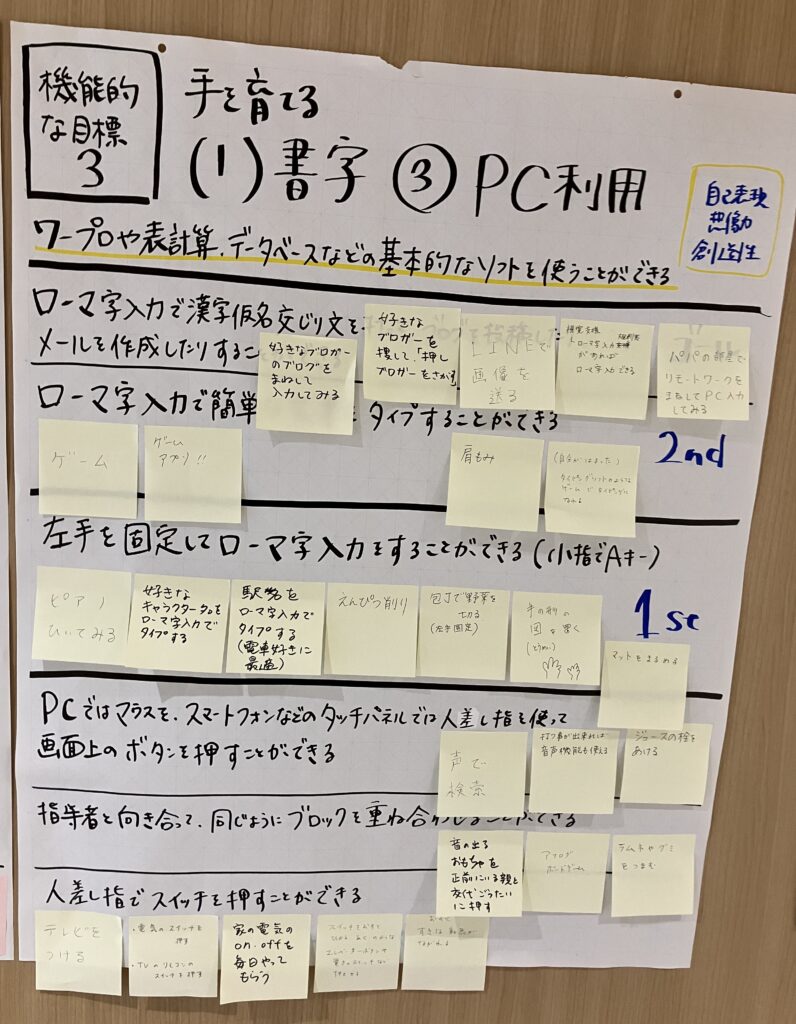 機能的
な目標
3
手を育てる
(1)書字 ③PC利用
自己表現
想像力
創造性
ワープロや表計算、データベースなどの基本的なソフトを使うことができる
ローマ字入力で漢字仮名交じり文を
メールを作成したりするこ
好きなブロガー
のブログを
まねして
入力してみる
好きな
ブロガーを
捜して「押し
ブロガーをさがす
LINEで
画像を
送る
ローマ字入力
があれば
ローマ字入力できる
パパの部屋で、
リモートワークを
まねしてPC入力
してみる
ローマ字入力で簡単
タイプすることができる
2nd
ゲーム
ゲーム
アプリ!!
肩もみ
(自分がはまった)
タイピングソフトのような
ゲームでタイピングに
なれる
左手を固定してローマ字入力をすることができる(小指でAキー)
1st
ピアノ
ひいてみる
好きな
キャラクター名を
ローマ字入力で
タイプする
駅名を
ローマ字入力で
タイプする
(電車好きに
最適)
えんぴつ削り
包丁で野菜を
切る
(左手固定)
手の形の
図を置く
マットをまるめる
PCではマウスを、スマートフォンなどのタッチパネルでは人差し指を使って
画面上のボタンを押すことができる
声で
検索
打つ事が出来れば
音声機能も使える
ジュースの栓を
あける
指導者と向き合って、同じようにブロックを重ね合わせることができる
音の出る
おもちゃを
正前にいる親と
交代ごうたい
に押す
アナログ
ボードゲーム
ラムネやグミ
をつまむ
人差し指でスイッチを押すことができる
テレビを
つける
・電気のスイッチを
押す
・TVのリモコンの
スイッチを押す
家の電気の
on・offを
毎日やって
もらう
スイッチをおすと